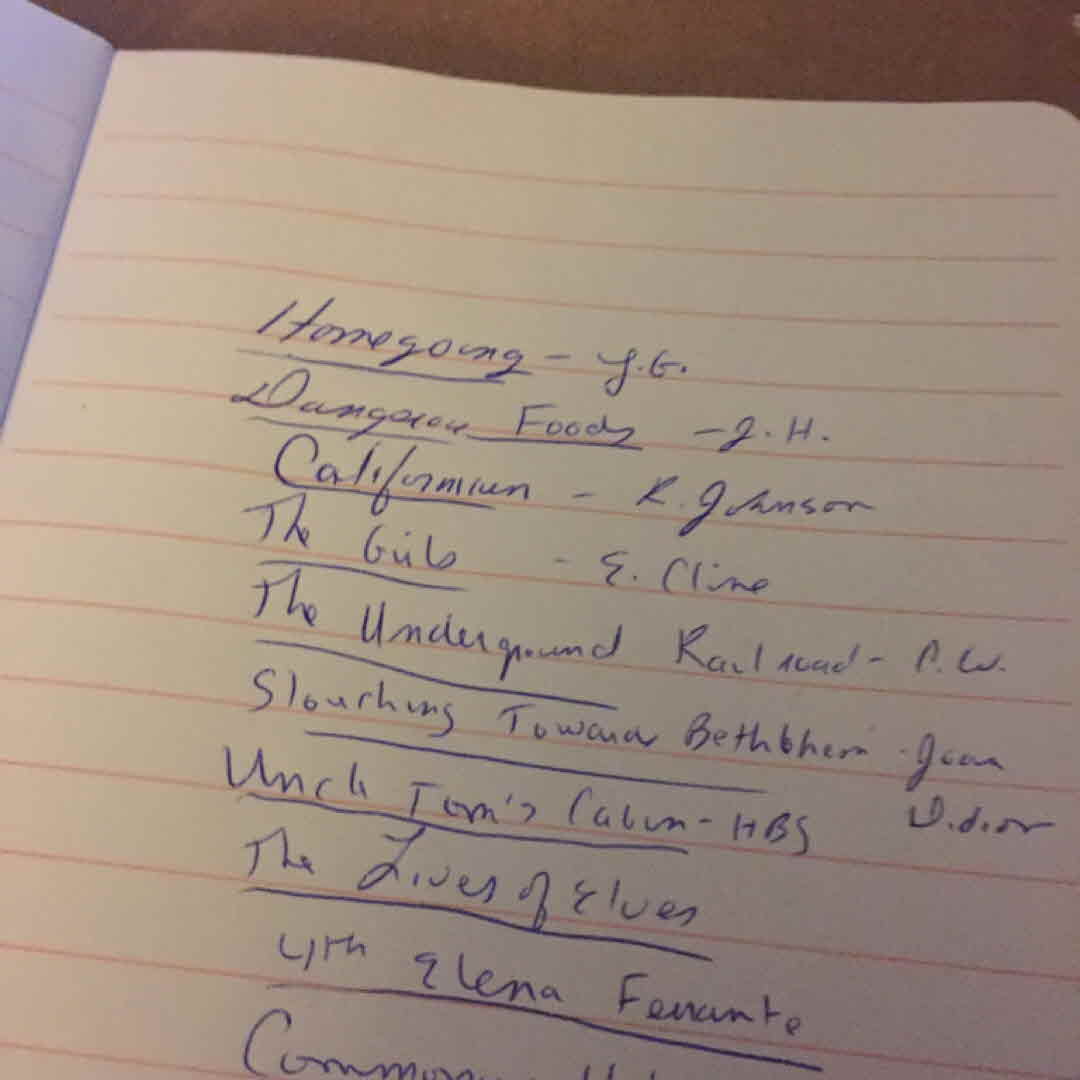 Homegoing - Y.G.
Dangerous Foods - J.H.
Californium - R. Johnson
The Girls - E. Cline
The Underground Railroad - C.W.
Slouching Toward Bethlehem - Joan
Uncle Tom's Cabin - HBS Didion
The Lives of Elves
4th Elena Ferrante
Common